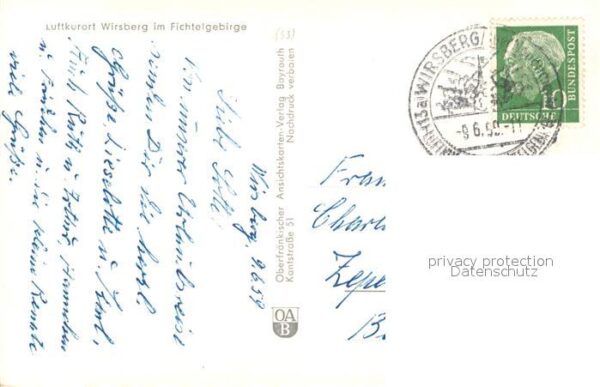 Luftkurort Wirsberg im Fichtelgebirge
(53)
Wirsberg, 9.6.59
Liebe Lotte!
Von unserer Urlaubsreise
senden Dir die herzl.
Grüsse Lieselotte u. Karl,
Auch Ruth u.
u. Familien u. die kleine Renate
viele Grüße.
Oberfränkischer Ansichtskarten-Verlag Bayreuth
Kantstraße 51 Nachdruck verboten
OA
B
(13a) WIRSBERG
-9.6.59.-11
10
DEUTSCHE
BUNDESPOST
Frau
Char
Zepe
B
privacy protection
Datenschutz